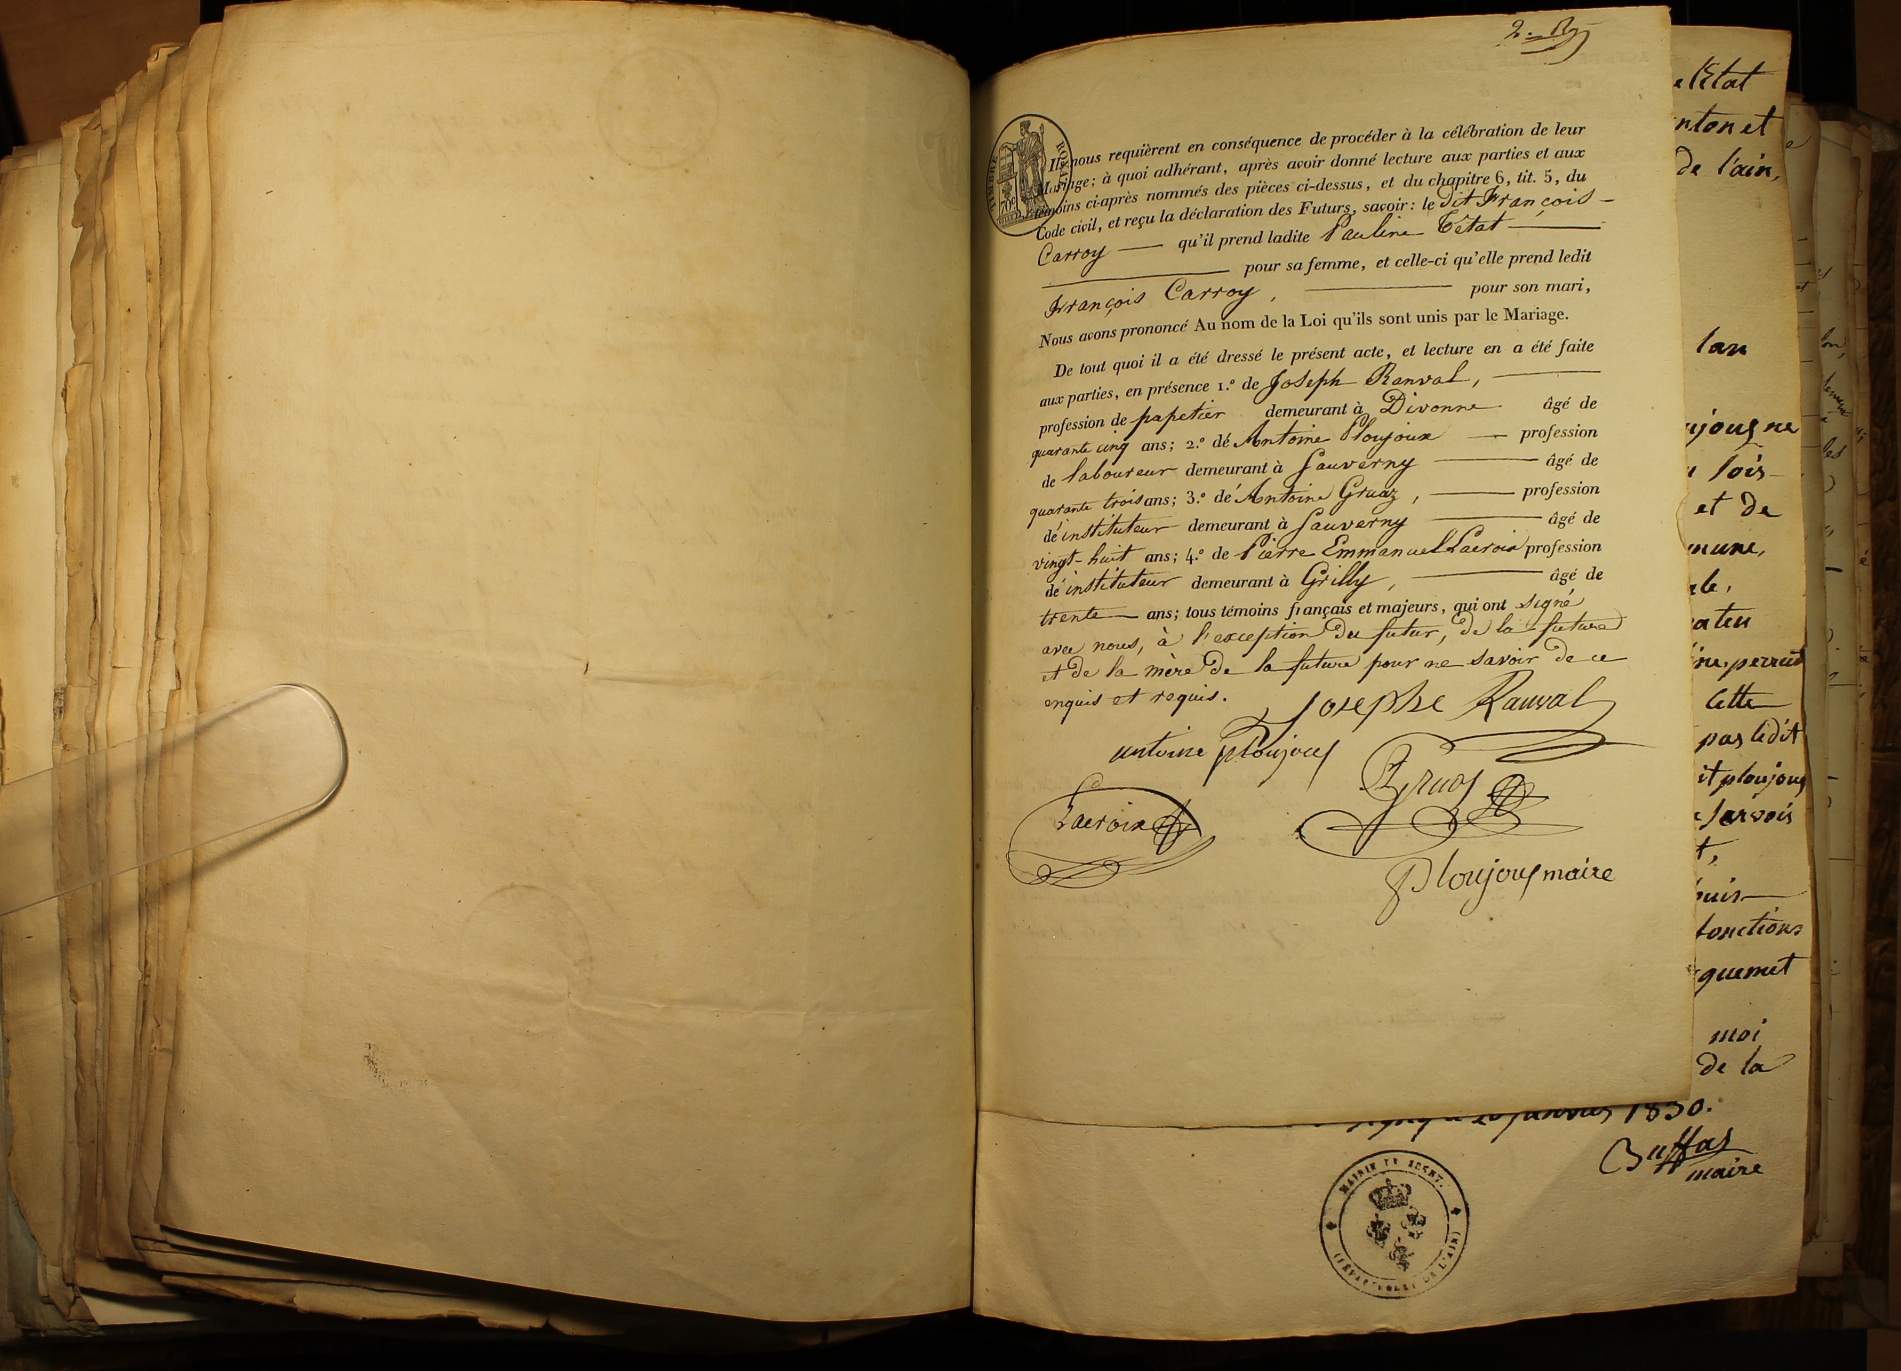 TIMBRE ROYAL
70c
Ils nous requièrent en conséquence de procéder à la célébration de leur
Mariage; à quoi adhérant, après avoir donné lecture aux parties et aux
témoins ci-après nommés des pièces ci-dessus, et du chapitre 6, tit. 5, du
Code civil, et reçu la déclaration des Futurs, savoir: le dit François
Carroy — qu'il prend ladite Pauline Tétat —
— pour sa femme, et celle-ci qu'elle prend ledit
François Carroy, — pour son mari,
Nous avons prononcé Au nom de la Loi qu'ils sont unis par le Mariage.
De tout quoi il a été dressé le présent acte, et lecture en a été faite
aux parties, en présence 1.º de Joseph Ranval, —
profession de papetier demeurant à Divonne âgé de
quarante cinq ans; 2.º de Antoine Ploujoux — profession
de laboureur demeurant à Sauverny — âgé de
quarante trois ans; 3.º de Antoine Gruaz, — profession
d'instituteur demeurant à Sauverny — âgé de
vingt-huit ans; 4.º de Pierre Emmanuel Lacroix profession
d'instituteur demeurant à Grilly, — âgé de
trente — ans; tous témoins français et majeurs, qui ont signé
avec nous, à l'exception du futur, de la future
et de la mère de la future pour ne savoir de ce
enquis et requis.
Josephe Ranval
antoine ploujous
Gruaz
Lacroix
Ploujous maire
l'Etat
canton et
de l'ain,
lan
et de
cette
pas ledit
it ploujous
fonctions
moi
de la
janvier 1830.
Buffas
maire
MAIRIE DE
DEPARTEMENT DE L'AIN